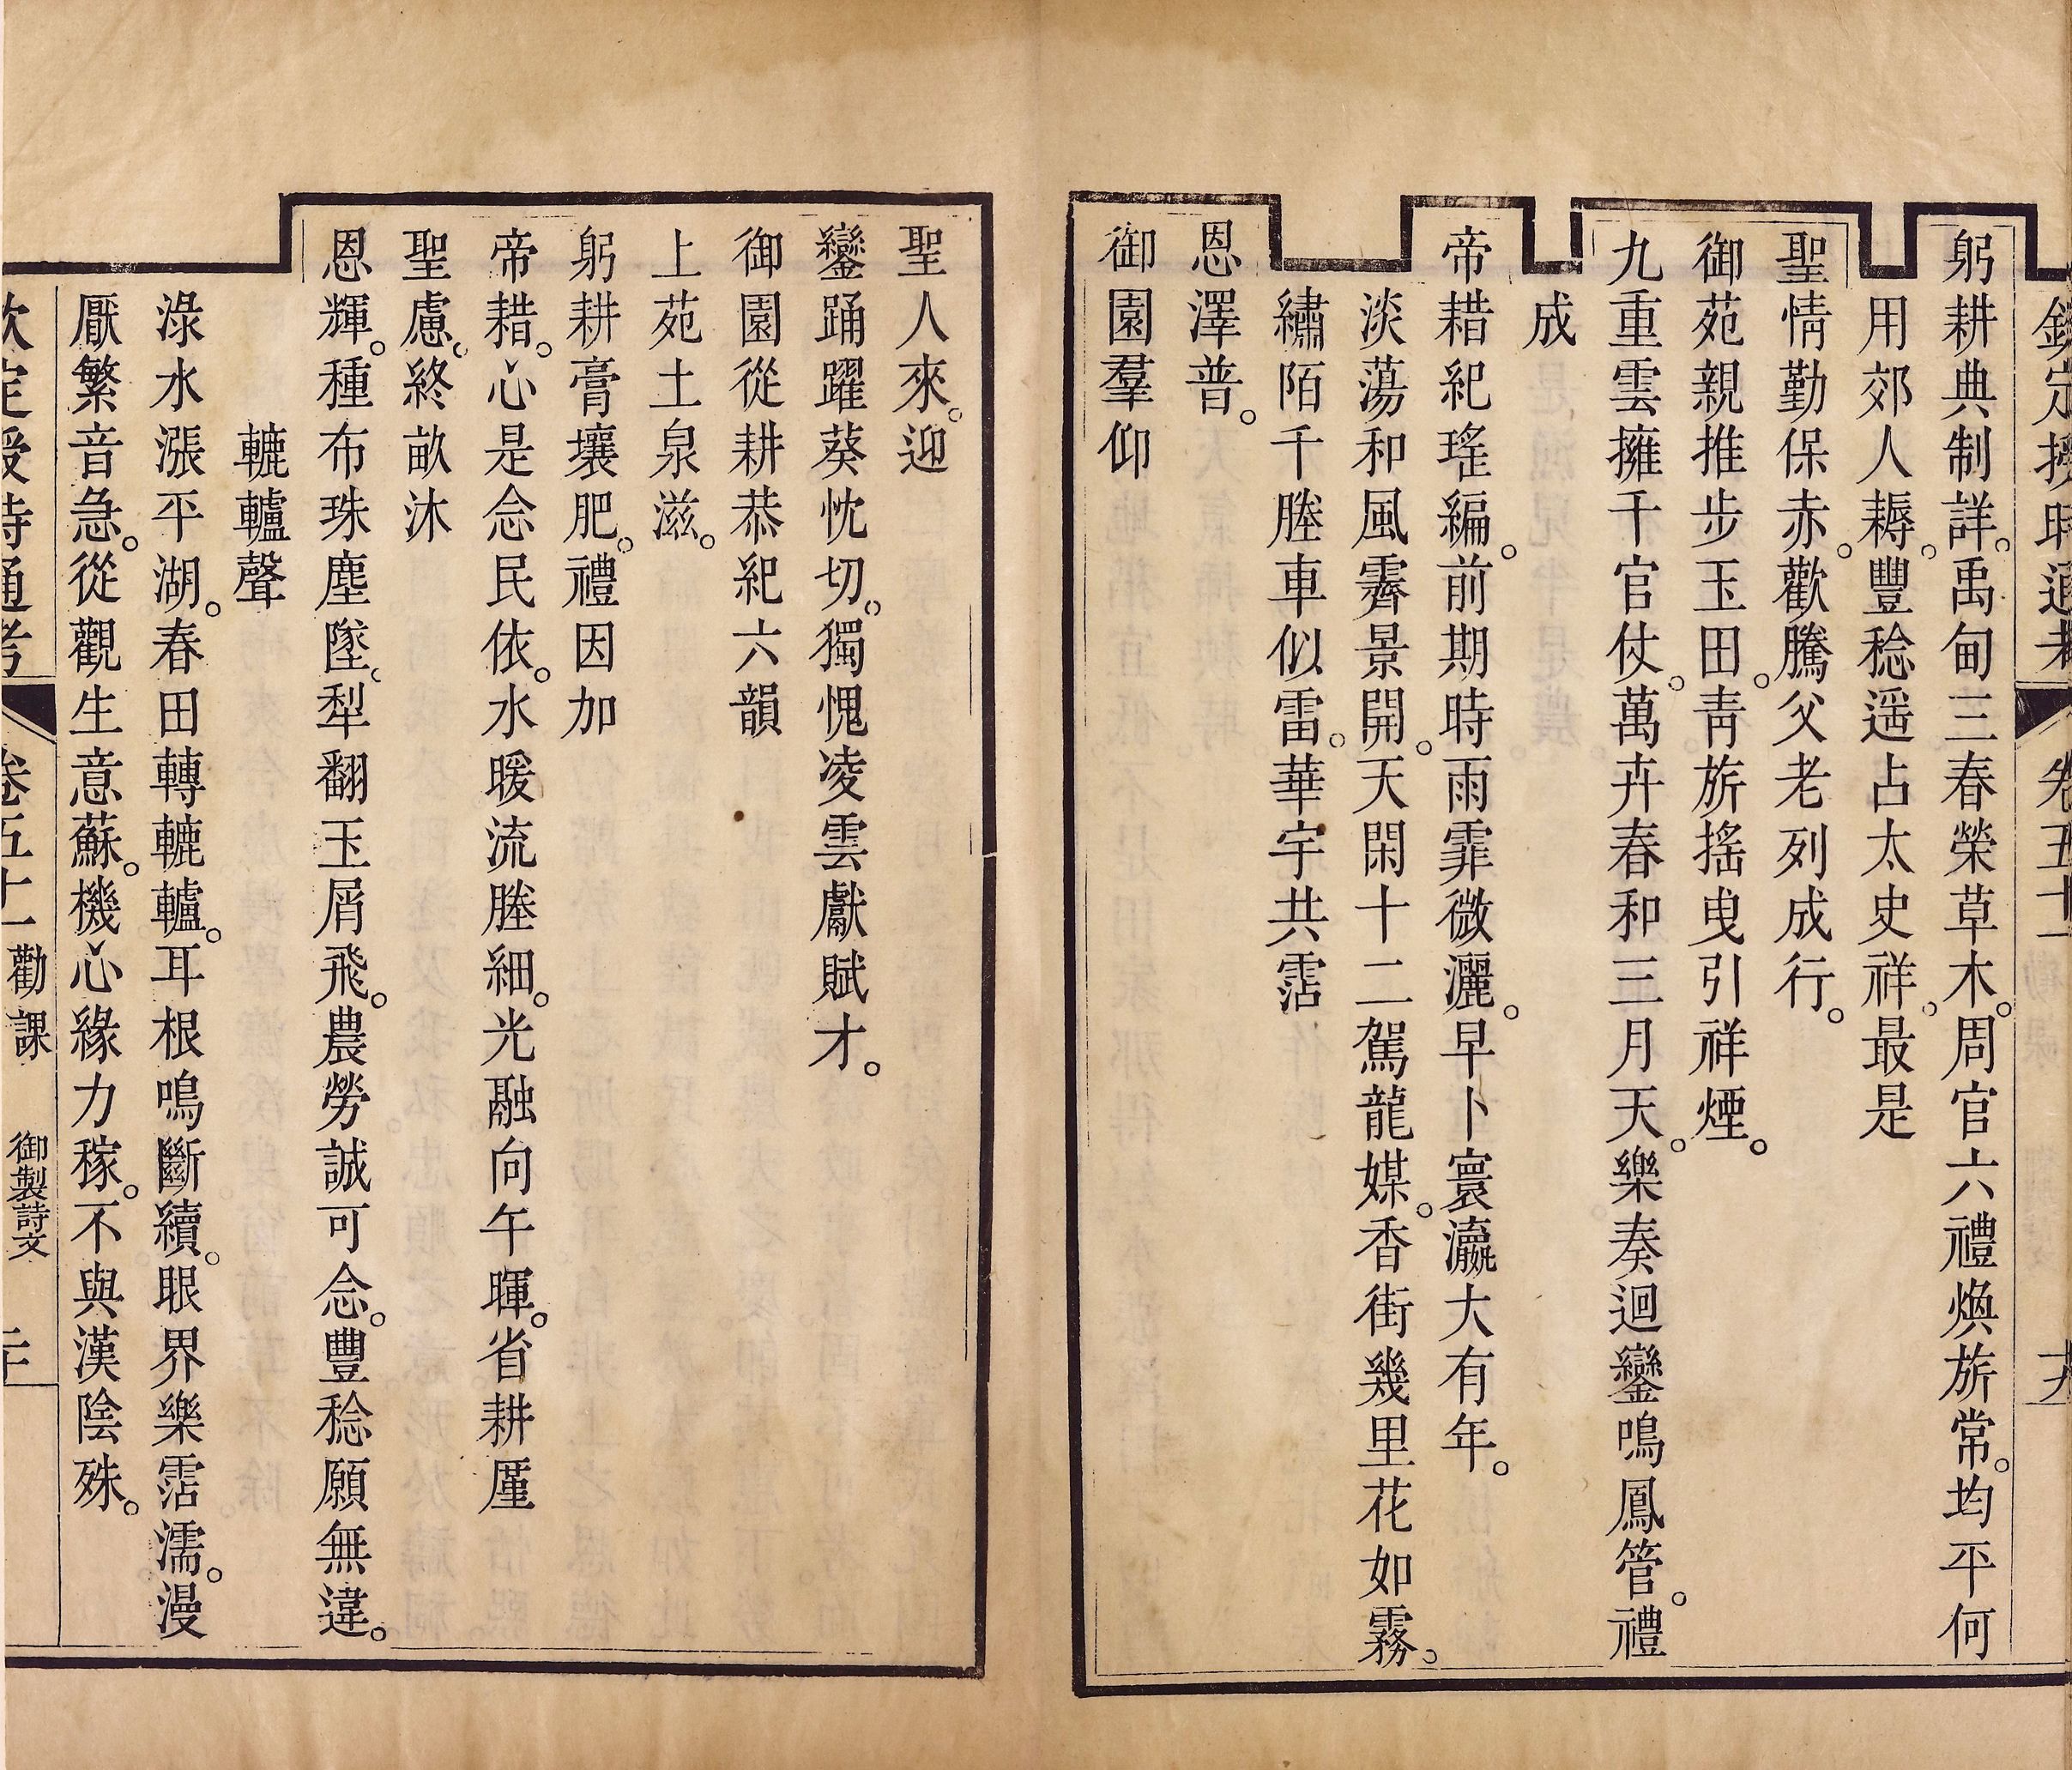 欽定授時通考 卷五十一 勸課 十九
躬耕典制詳。禹甸三春榮草木。周官六禮煥旂常。均平何
用郊人耨。豐稔遥占太史祥。最是
聖情勤保赤。歡騰父老列成行。
御苑親推步玉田。靑旂搖曳引祥煙。
九重雲擁千官仗。萬卉春和三月天。樂奏迴鑾鳴鳳管。禮
成
帝耤紀瑤編。前期時雨霏微灑。早卜寰瀛大有年。
淡蕩和風霽景開。天閑十二駕龍媒。香街幾里花如霧。
繡陌千塍車似雷。華宇共霑
恩澤普。
御園羣仰
聖人來。迎
鑾踊躍葵忱切。獨愧凌雲獻賦才。
御園從耕恭紀六韻
上苑土泉滋。
躬耕膏壤肥。禮因加
帝耤。心是念民依。水暖流塍細。光融向午暉。省耕厪
聖慮。終畝沐
恩輝。種布珠塵墜。犁翻玉屑飛。農勞誠可念。豐稔願無違。
轆轤聲
淥水漲平湖。春田轉轆轤。耳根鳴斷續。眼界樂霑濡。漫
厭繁音急。從觀生意蘇。機心緣力稼。不與漢陰殊。
欽定授時通考 卷五十一 勸課 御製詩文 二十